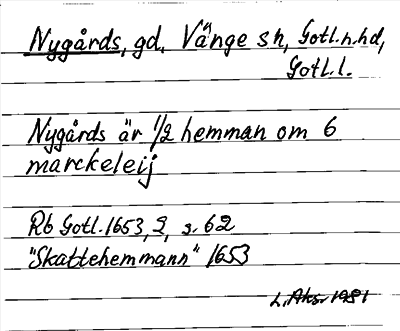 Nygårds, gd, Vänge sn, Gotl.n.hd,
Gotl.l.
Nygårds är 1/2 hemman om 6
marckeleij
Rb Gotl. 1653, 2, s. 62
"Skattehemmann" 1653
L. Aks. 1981